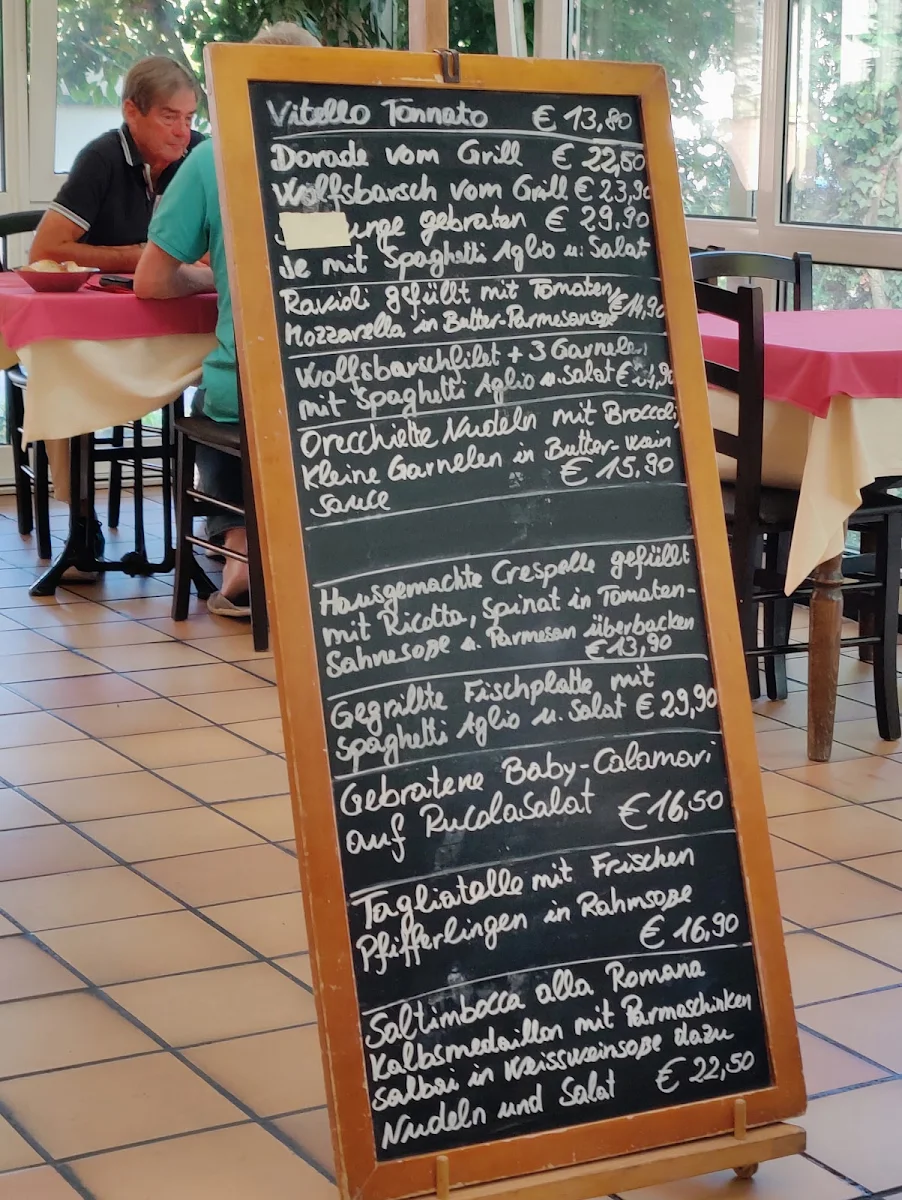 Vitello Tonnato € 13,80
Dorade vom Grill € 22,50
Wolfsbarsch vom Grill € 23,90
gebraten € 29,90
Je mit Spaghetti Aglio u. Salat
Ravioli gefüllt mit Tomaten, € 14,90
Mozzarella in Butter-Parmesansoße
Wolfsbarschfilet + 3 Garnelen
mit Spaghetti Aglio u. Salat €
Orecchiette Nudeln mit Broccoli,
Kleine Garnelen in Butter-Wein
Sauce € 15,90
Hausgemachte Crespelle gefüllt
mit Ricotta, Spinat in Tomaten-
Sahnesoße u. Parmesan überbacken
€ 13,90
Gegrillte Fischplatte mit
Spaghetti Aglio u. Salat € 29,90
Gebratene Baby-Calamari
auf Rucolasalat € 16,50
Tagliatelle mit Frischen
Pfifferlingen in Rahmsoße
€ 16,90
Saltimbocca alla Romana
Kalbsmedaillon mit Parmaschinken
Salbei in Weissweinsoße dazu
Nudeln und Salat € 22,50